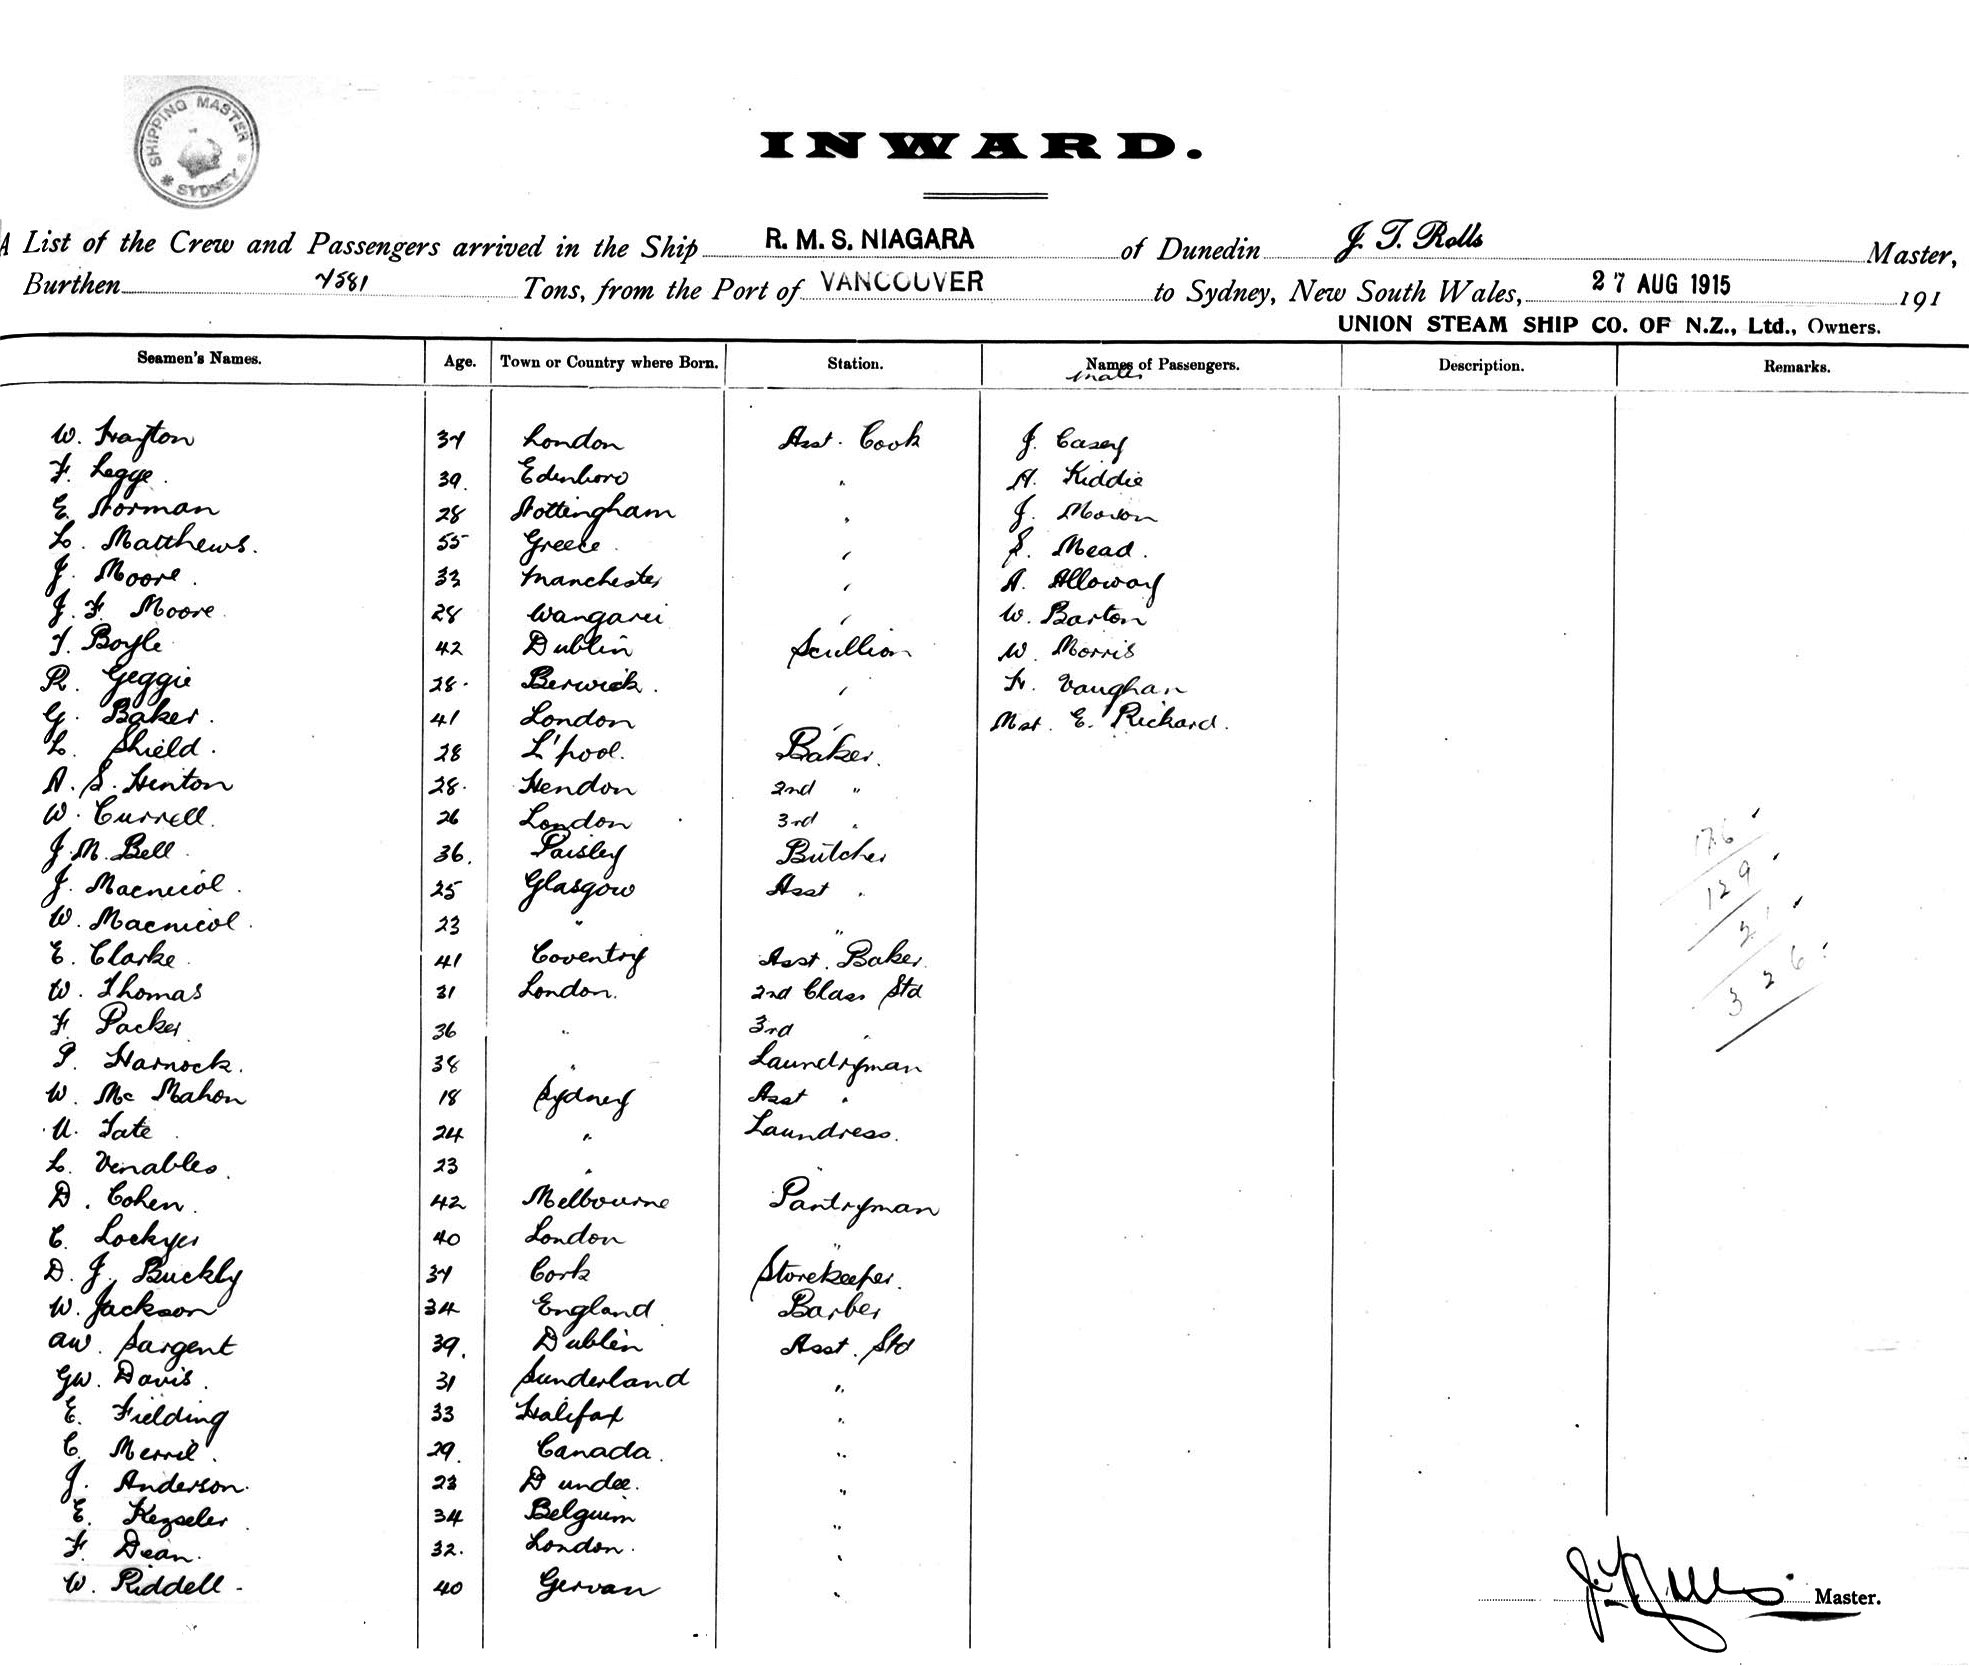 SHIPPING MASTER
SYDNEY
INWARD.
A List of the Crew and Passengers arrived in the Ship R. M. S. NIAGARA of Dunedin J. T. Rolls Master,
Burthen 7581 Tons, from the Port of VANCOUVER to Sydney, New South Wales, 27 AUG 1915 191
UNION STEAM SHIP CO. OF N.Z., Ltd., Owners.
Seamen's Names. Age. Town or Country where Born. Station. Names of Passengers. Description. Remarks.
males
W. 37 London Asst. Cook J. Casey
F. Legge. 39. Edenboro " A. Kiddie
E. Norman 28 Nottingham " J. Moxon
L. Matthews. 55 Greece. " S. Mead.
J. Moore. 33 Manchester " A. Alloway
J. F. Moore 28 Wangarei " W. Barton
T. Boyle 42 Dublin Scullion W. Morris
R. Geggie 28. Berwick. " F. Vaughan
G. Baker. 41 London " Mst. E. Richard.
L. Shield. 28 L'pool. Baker.
A. S. Hinton 28. Hendon 2nd "
W. Currell. 26 London 3rd "
J. M. Bell 36. Paisley Butcher
J. Macnicol. 25 Glasgow Asst "
W. Macnicol. 23 " "
E. Clarke 41 Coventry Asst. Baker.
W. Thomas 31 London. 2nd Class Std
F. Packer 36 " 3rd "
P. Harnock. 38 " Laundryman
W. Mc Mahon 18 Sydney Asst "
U. Tate 24 " Laundress.
L. Venables. 23 " "
D. Cohen. 42 Melbourne Pantryman
C. Lockyer 40 London "
D. J. Buckly 37 Cork Storekeeper.
W. Jackson 34 England Barber
AW. Sargent 39. Dublin Asst. Std
GW. Davis. 31 Sunderland "
E. Fielding 33 Halifax "
C. Merril. 29. Canada. "
J. Anderson. 23 Dundee. "
E. Kezseler 34 Belguim "
F. Dean. 32. London. "
W. Riddell - 40 Gervan "
176
129
21
326
J. T. Rolls Master.